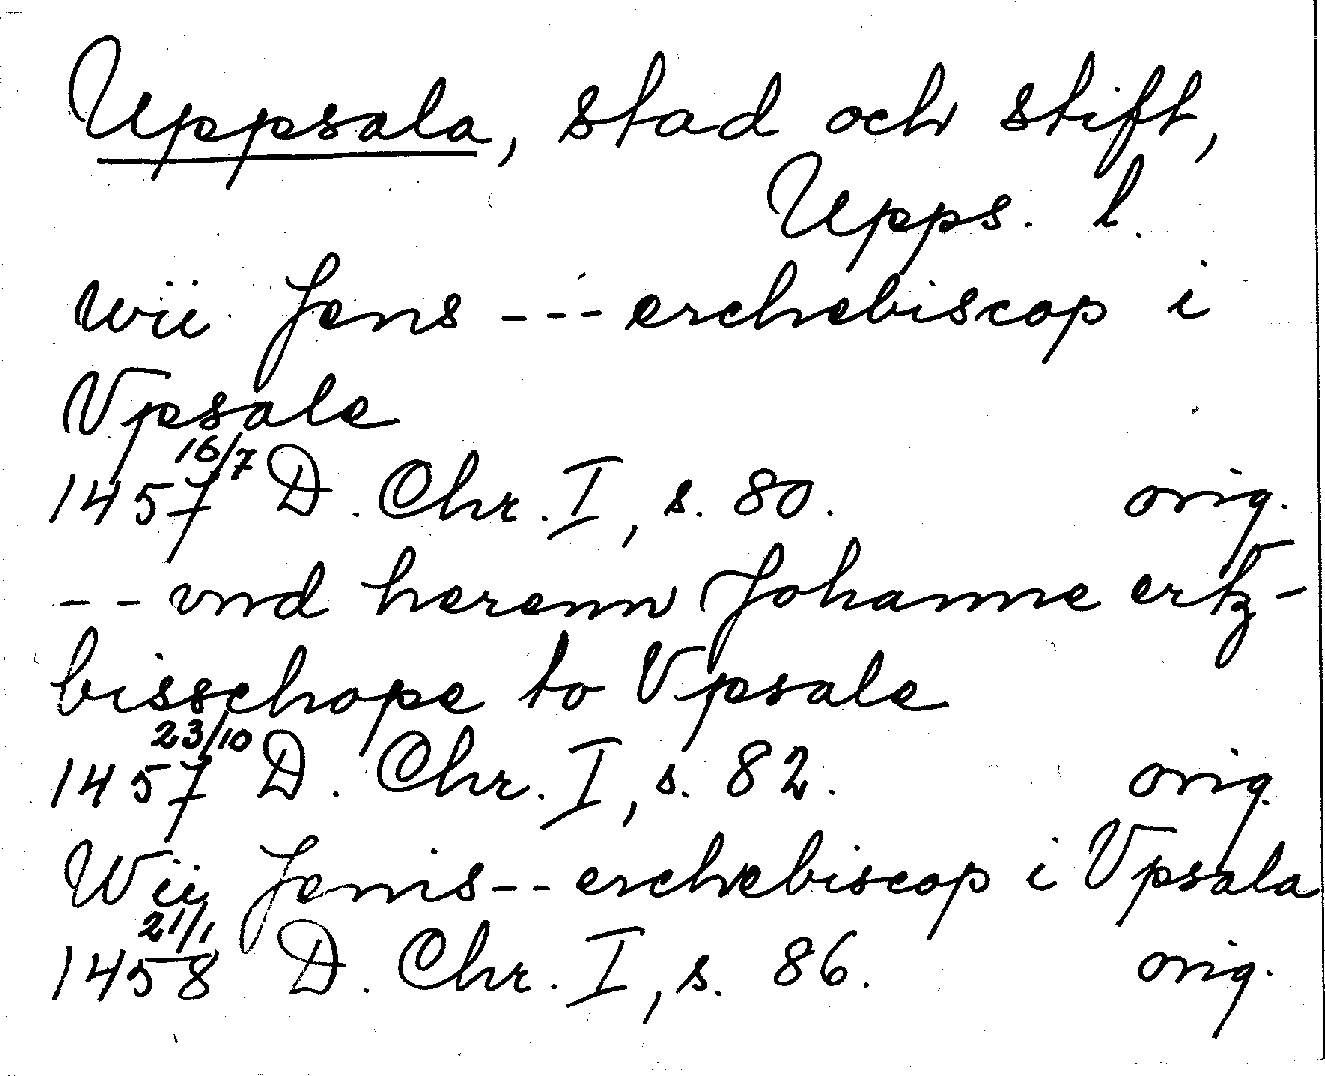 Uppsala, stad och stift,
Upps. l.
wii Jens --- erchebiscop i
Vpsale
1457 16/7 D. Chr. I, s. 80. orig.
-- vnd herenn Johanne ertz-
bisschope to Vpsale
1457 23/10 D. Chr. I, s. 82. orig.
Wij Jenis -- erchebiscop i Vpsala
1458 21/1 D. Chr. I, s. 86. orig.